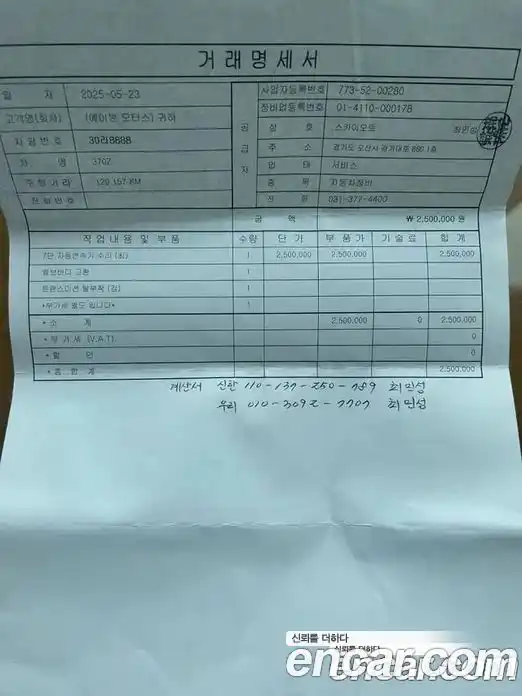 거래명세서
일 자 2025-05-23
고객명(회사) (에이원 모터스) 귀하
차량번호 39러8688
차 명 3707
주행거리 129,157 KM
전화번호
공급자
사업자등록번호 773-52-00280
정비업등록번호 01-4110-000178
상 호 스카이모토 최민성
주 소 경기도 오산시 경기대로 880 1층
업 태 서비스
종 목 자동차정비
전 화 031-377-4400
금 액 ₩ 2,500,000 원
작업내용 및 부품 수량 단 가 부 품 가 기 술 료 합 계
7단 자동변속기 수리 (최) 1 2,500,000 2,500,000 2,500,000
밸브바디 교환 1
트랜스미션 탈부착 (김) 1
*부가세 별도 입니다* 1
* 소 계 2,500,000 0 2,500,000
* 부 가 세 (V.A.T) 0
* 할 인 0
* 총 합 계 2,500,000
계산서 신한 110-137-250-789 최민성
우리 010-3092-7707 최민성
신뢰를 더하다
신뢰를 더하다
encar.com